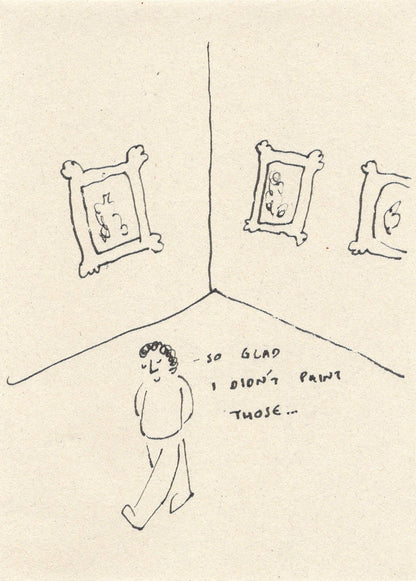 - SO GLAD
I DIDN'T PAINT
THOSE...